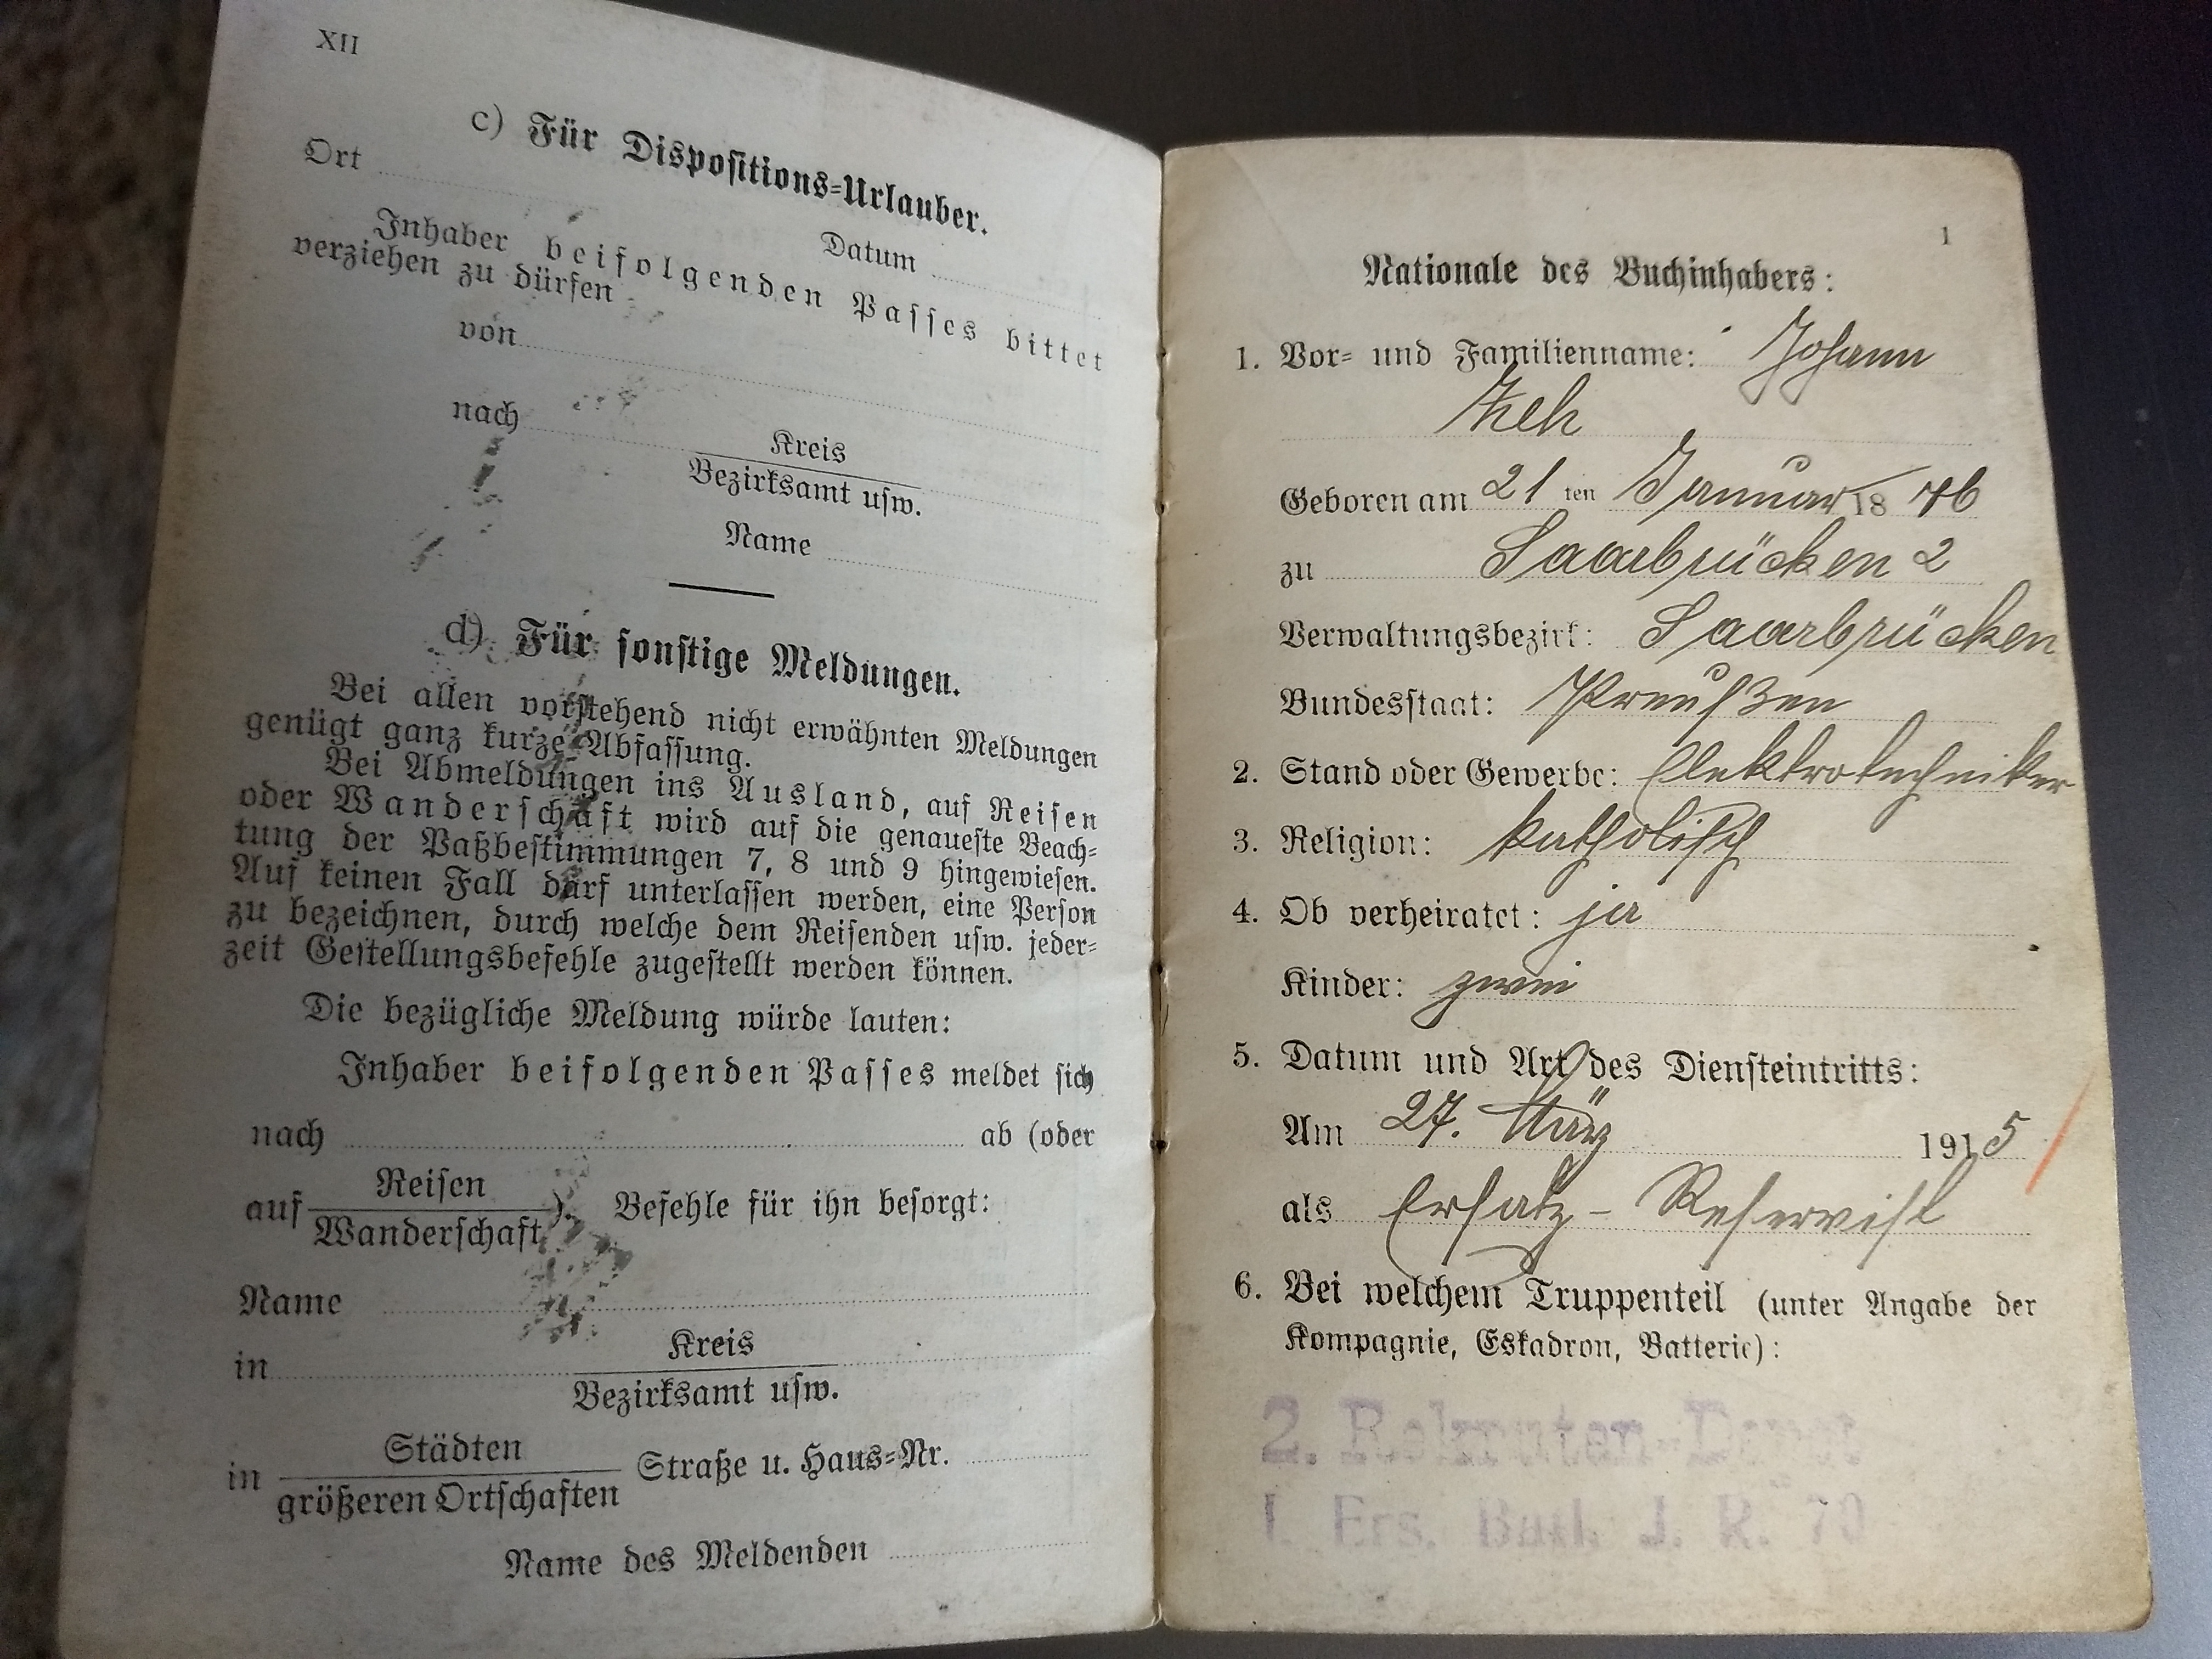 XII
c) Für Dispositions-Urlauber.
Ort
Datum
Inhaber beifolgenden Passes bittet
verziehen zu dürfen
von
nach
Kreis
Bezirksamt usw.
Name
d) Für sonstige Meldungen.
Bei allen vorstehend nicht erwähnten Meldungen
genügt ganz kurze Abfassung.
Bei Abmeldungen ins Ausland, auf Reisen
oder Wanderschaft wird auf die genaueste Beach-
tung der Paßbestimmungen 7, 8 und 9 hingewiesen.
Auf keinen Fall darf unterlassen werden, eine Person
zu bezeichnen, durch welche dem Reisenden usw. jeder-
zeit Gestellungsbefehle zugestellt werden können.
Die bezügliche Meldung würde lauten:
Inhaber beifolgenden Passes meldet sich
nach ab (oder
auf Reisen
Wanderschaft). Befehle für ihn besorgt:
Name
in Kreis
Bezirksamt usw.
in Städten
größeren Ortschaften Straße u. Haus-Nr.
Name des Meldenden
1
Nationale des Buchinhabers:
1. Vor- und Familienname: Johann
Geboren am 21 ten Januar 18 76
zu Saarbrücken 2
Verwaltungsbezirk: Saarbrücken
Bundesstaat: Preußen
2. Stand oder Gewerbe: Elektrotechniker
3. Religion: katholisch
4. Ob verheiratet: ja
Kinder: zwei
5. Datum und Art des Diensteintritts:
Am 27. März 1915
als Ersatz-Reservist
6. Bei welchem Truppenteil (unter Angabe der
Kompagnie, Eskadron, Batterie):
2. Rekruten-Depot
I. Ers. Batl. J. R. 70